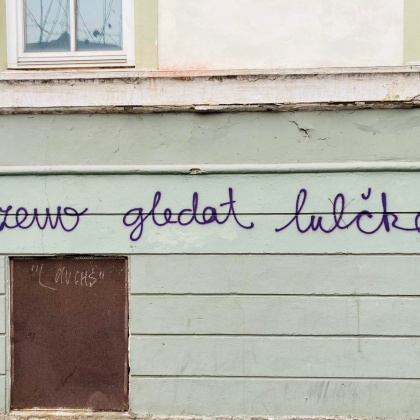 zemo gledat lulčke
"LAUCHS"